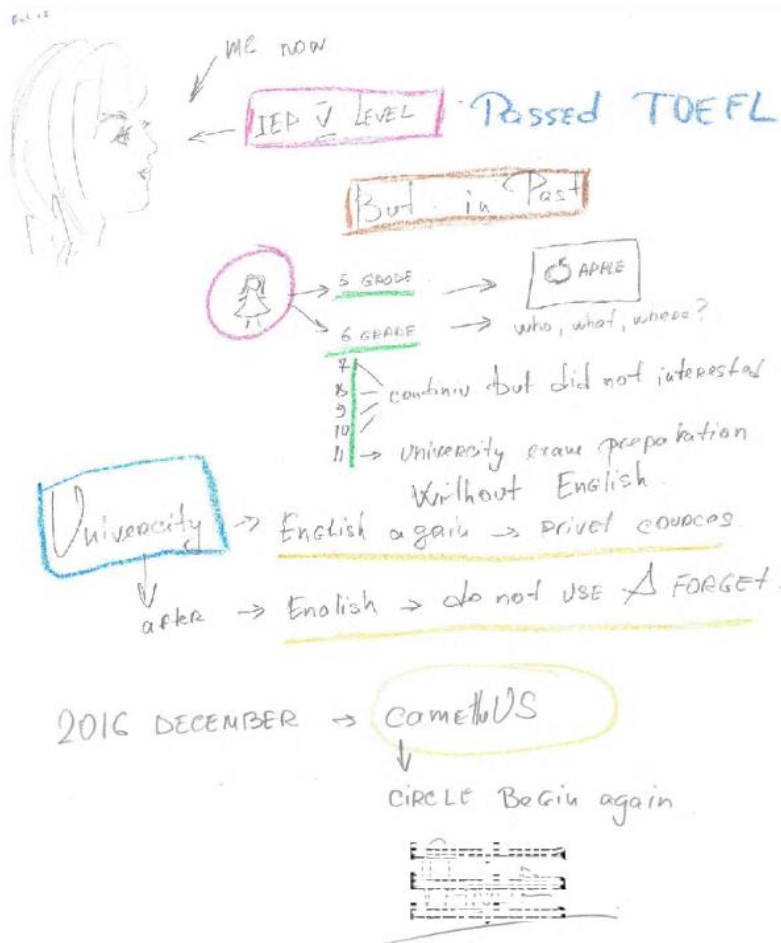 me now
IEP V LEVEL
Passed TOEFL
But in Past
5 GRADE
APPLE
6 GRADE
who, what, where?
7
8
continiu but did not interested
9
10
11 → Univercity exam preparation
Without English
Univercity → English again → privet cources
after → English → do not USE FORGET.
2016 DECEMBER → came the US
CIRCLE BeGin again